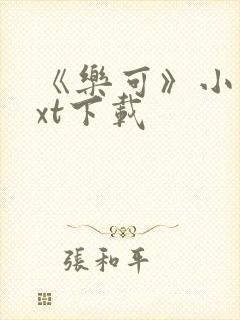 《樂可》小
xt下載
張和平